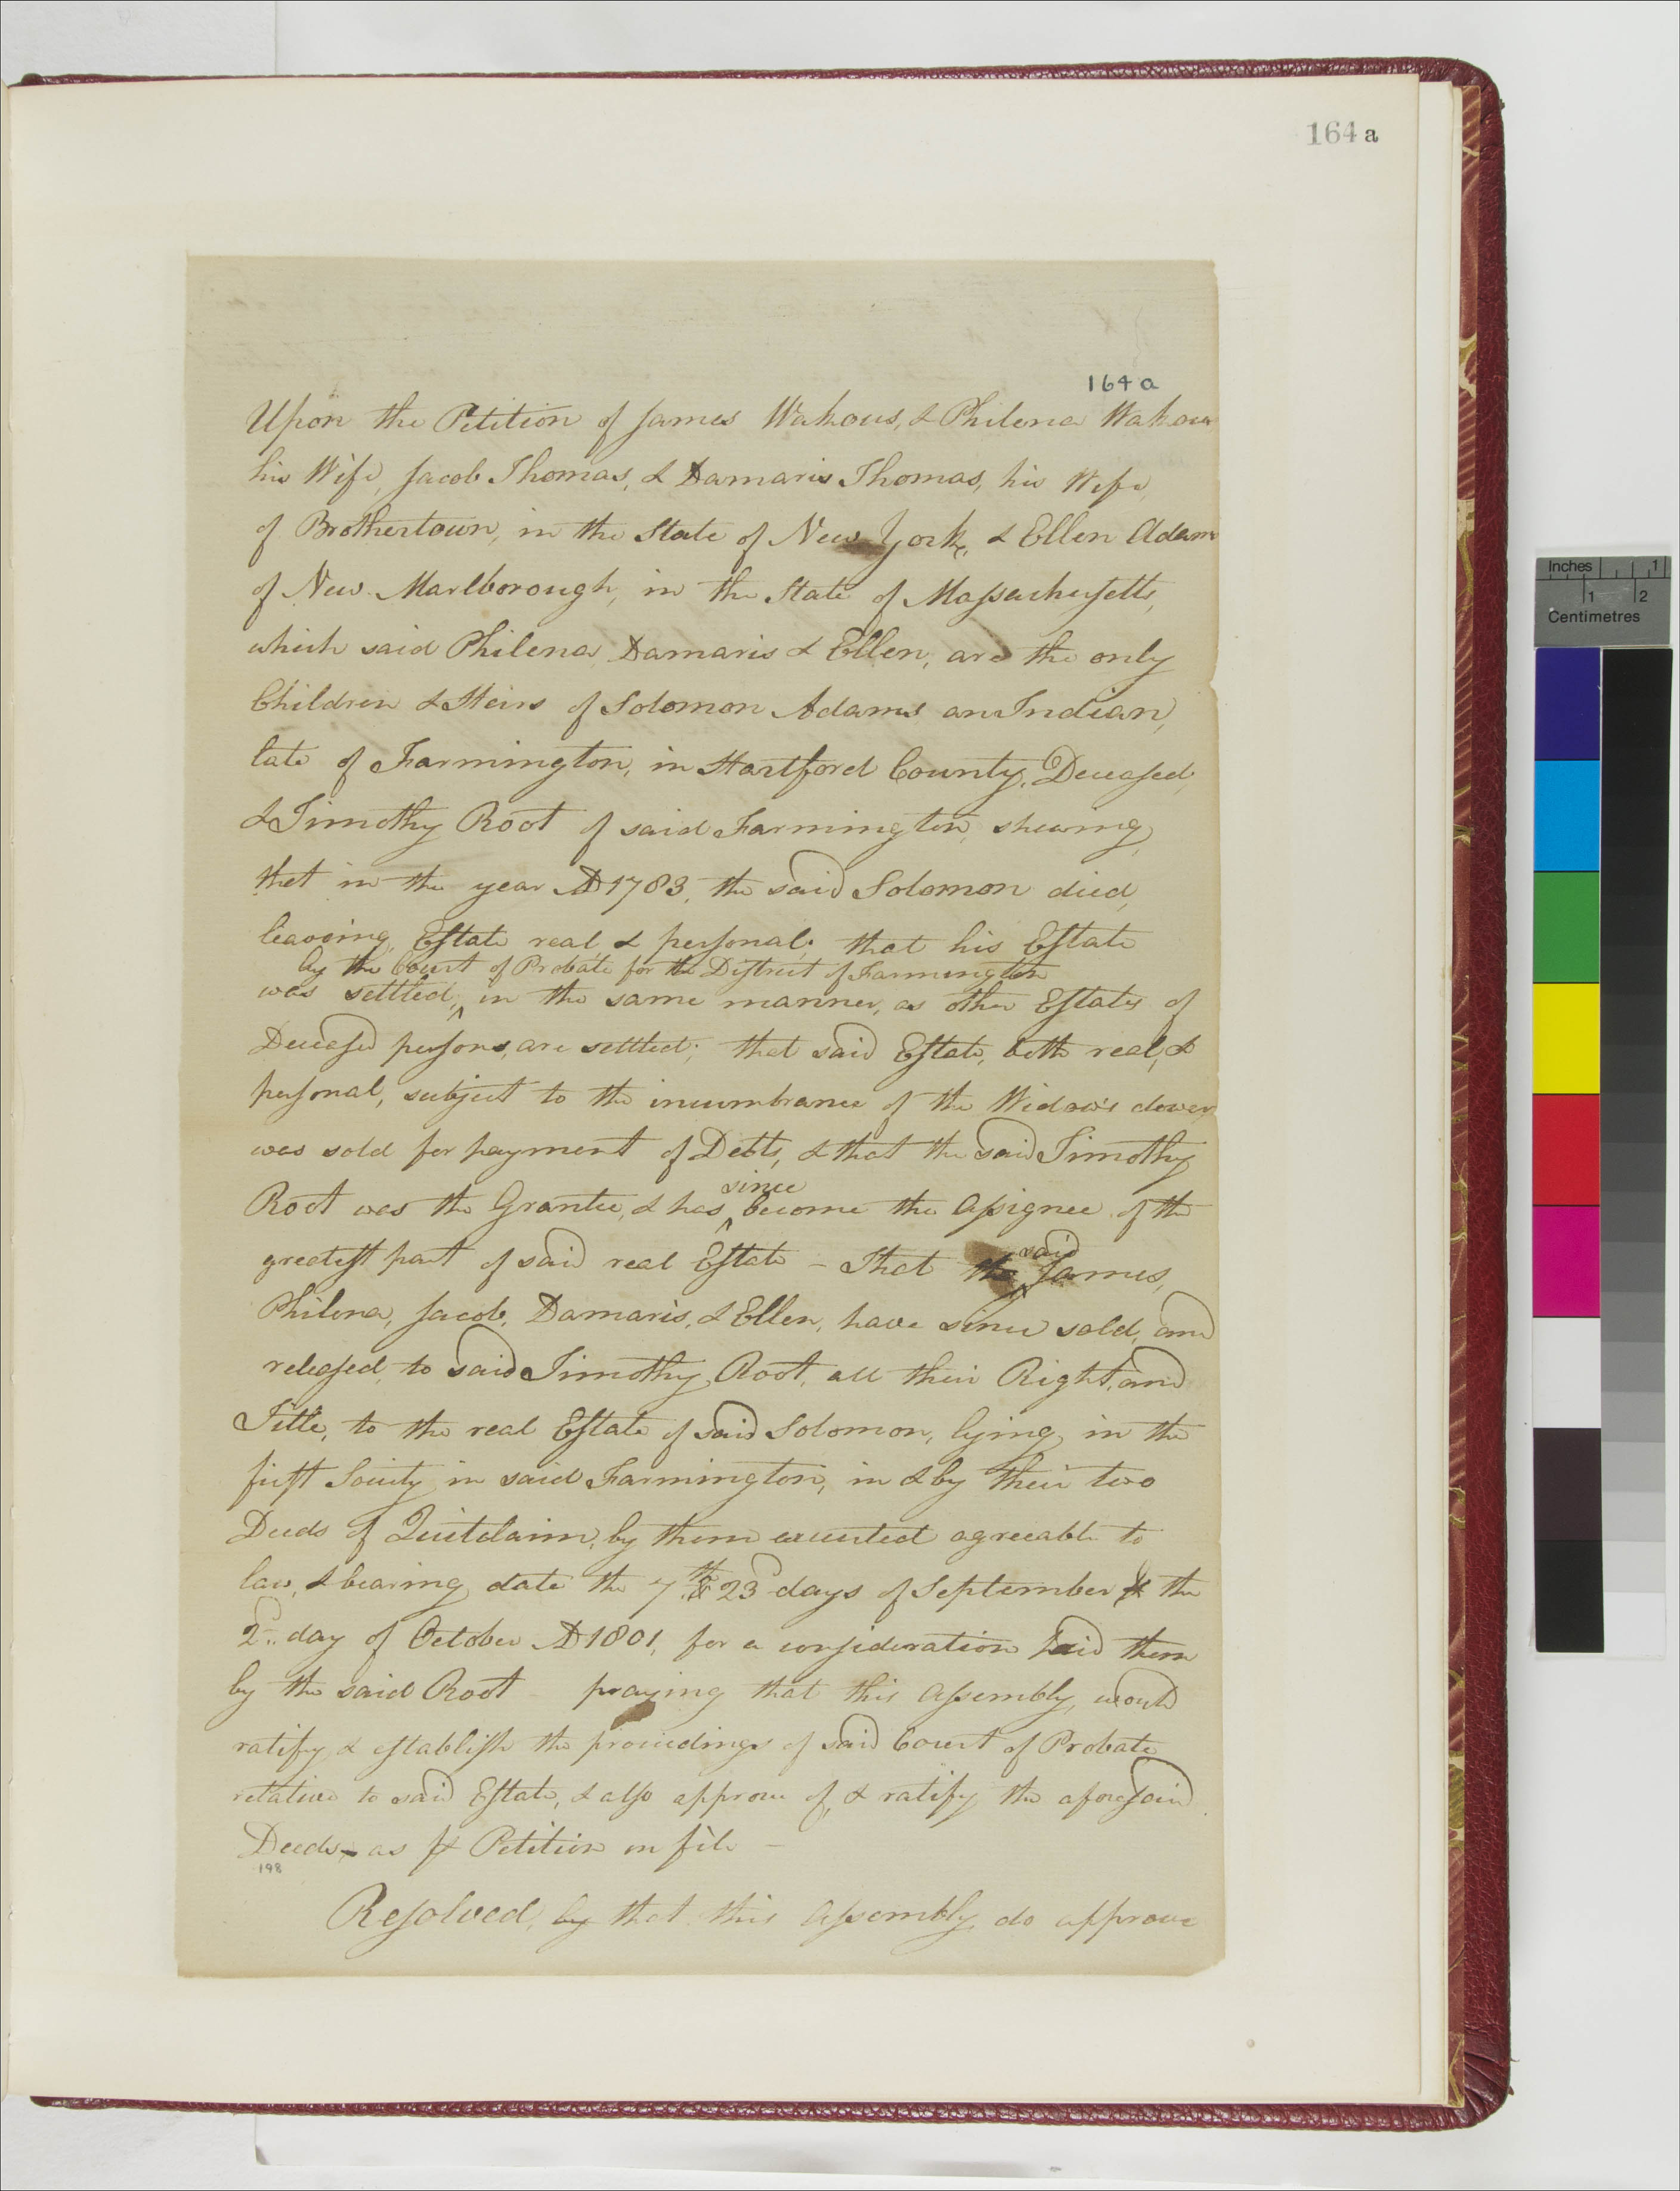 164 a
164 a
Upon the Petition of James Wakous, & Philena Wakous
his Wife, Jacob Thomas, & Damaris Thomas, his Wife,
of Brothertown, in the State of New York, & Ellen Adams
of New Marlborough, in the State of Massachusetts,
which said Philena, Damaris & Ellen, are the only
Children & Heirs of Solomon Adams an Indian,
late of Farmington, in Hartford County, Deceased,
& Timothy Root of said Farmington, shewing,
that in the year AD 1783, the said Solomon died,
leaving, Estate real & personal; that his Estate
by the Court of Probate for the District of Farmington
was settled, ^ in the same manner, as other Estates of
Deceased persons, are settled; that said Estate, both real, &
personal, subject to the incumbrance of the Widow's dower,
was sold for payment of Debts, & that the said Timothy
since
Root was the Grantee, & has ^ become the Assignee of the
greatest part of said real Estate – That the ^ said James,
Philena, Jacob, Damaris, & Ellen, have since sold, and
released, to said Timothy Root, all their Right, and
Title, to the real Estate of said Solomon, lying, in the
first Society in said Farmington, in & by their two
Deeds of Quitclaim, by them executed agreeable to
law, & bearing date the 7th & 23d days of September & the
2nd day of October AD 1801, for a consideration paid them
by the said Root praying that this Assembly, would
ratify & establish the proceedings of said Court of Probate
relative to said Estate, & also approve of, & ratify the aforesaid
Deeds – as pr Petition on file –
198
Resolved, by that this Assembly do approve
Inches 1
1 2
Centimetres